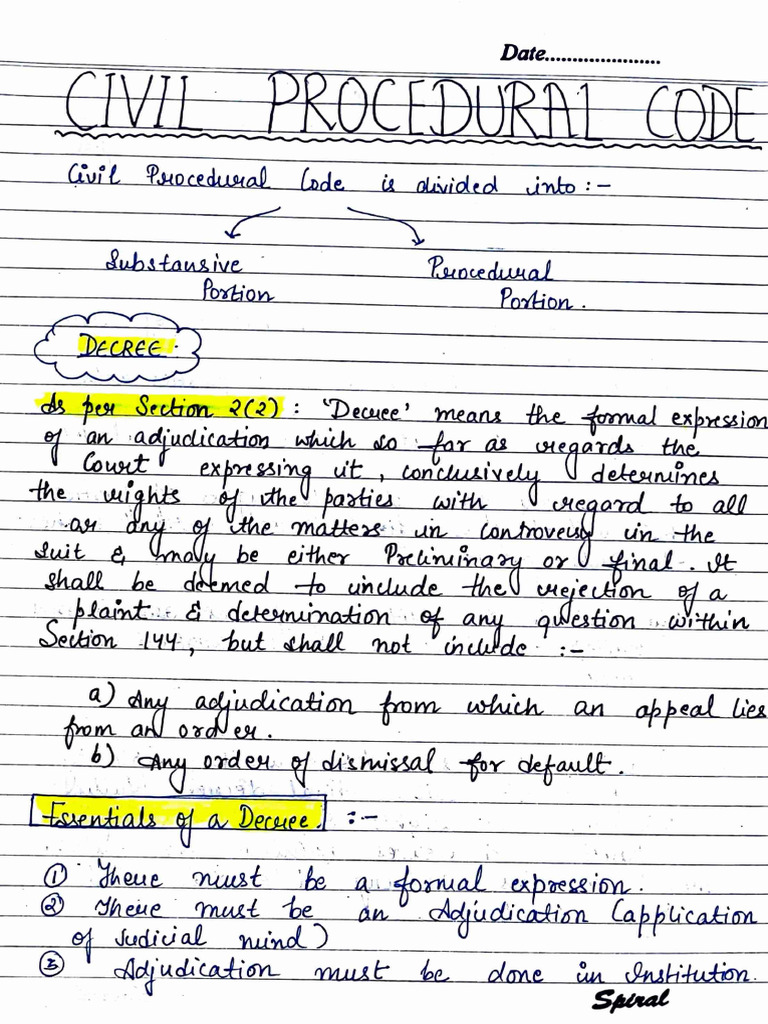 Date.....................
CIVIL PROCEDURAL CODE
Civil Procedural Code is divided into :-
Substansive Procedural
Portion Portion.
DECREE.
As per Section 2(2) : 'Decree' means the formal expression
of an adjudication which so far as regards the
Court expressing it, conclusively determines
the rights of the parties with regard to all
or any of the matters in controversy in the
suit & may be either Preliminary or final. It
shall be deemed to include the rejection of a
plaint & determination of any question within
Section 144, but shall not include :-
a) Any adjudication from which an appeal lies
from an order.
b) Any order of dismissal for default.
Essentials of a Decree. :-
① There must be a formal expression.
② There must be an Adjudication (application
of Judicial mind)
③ Adjudication must be done in Institution.
Spiral